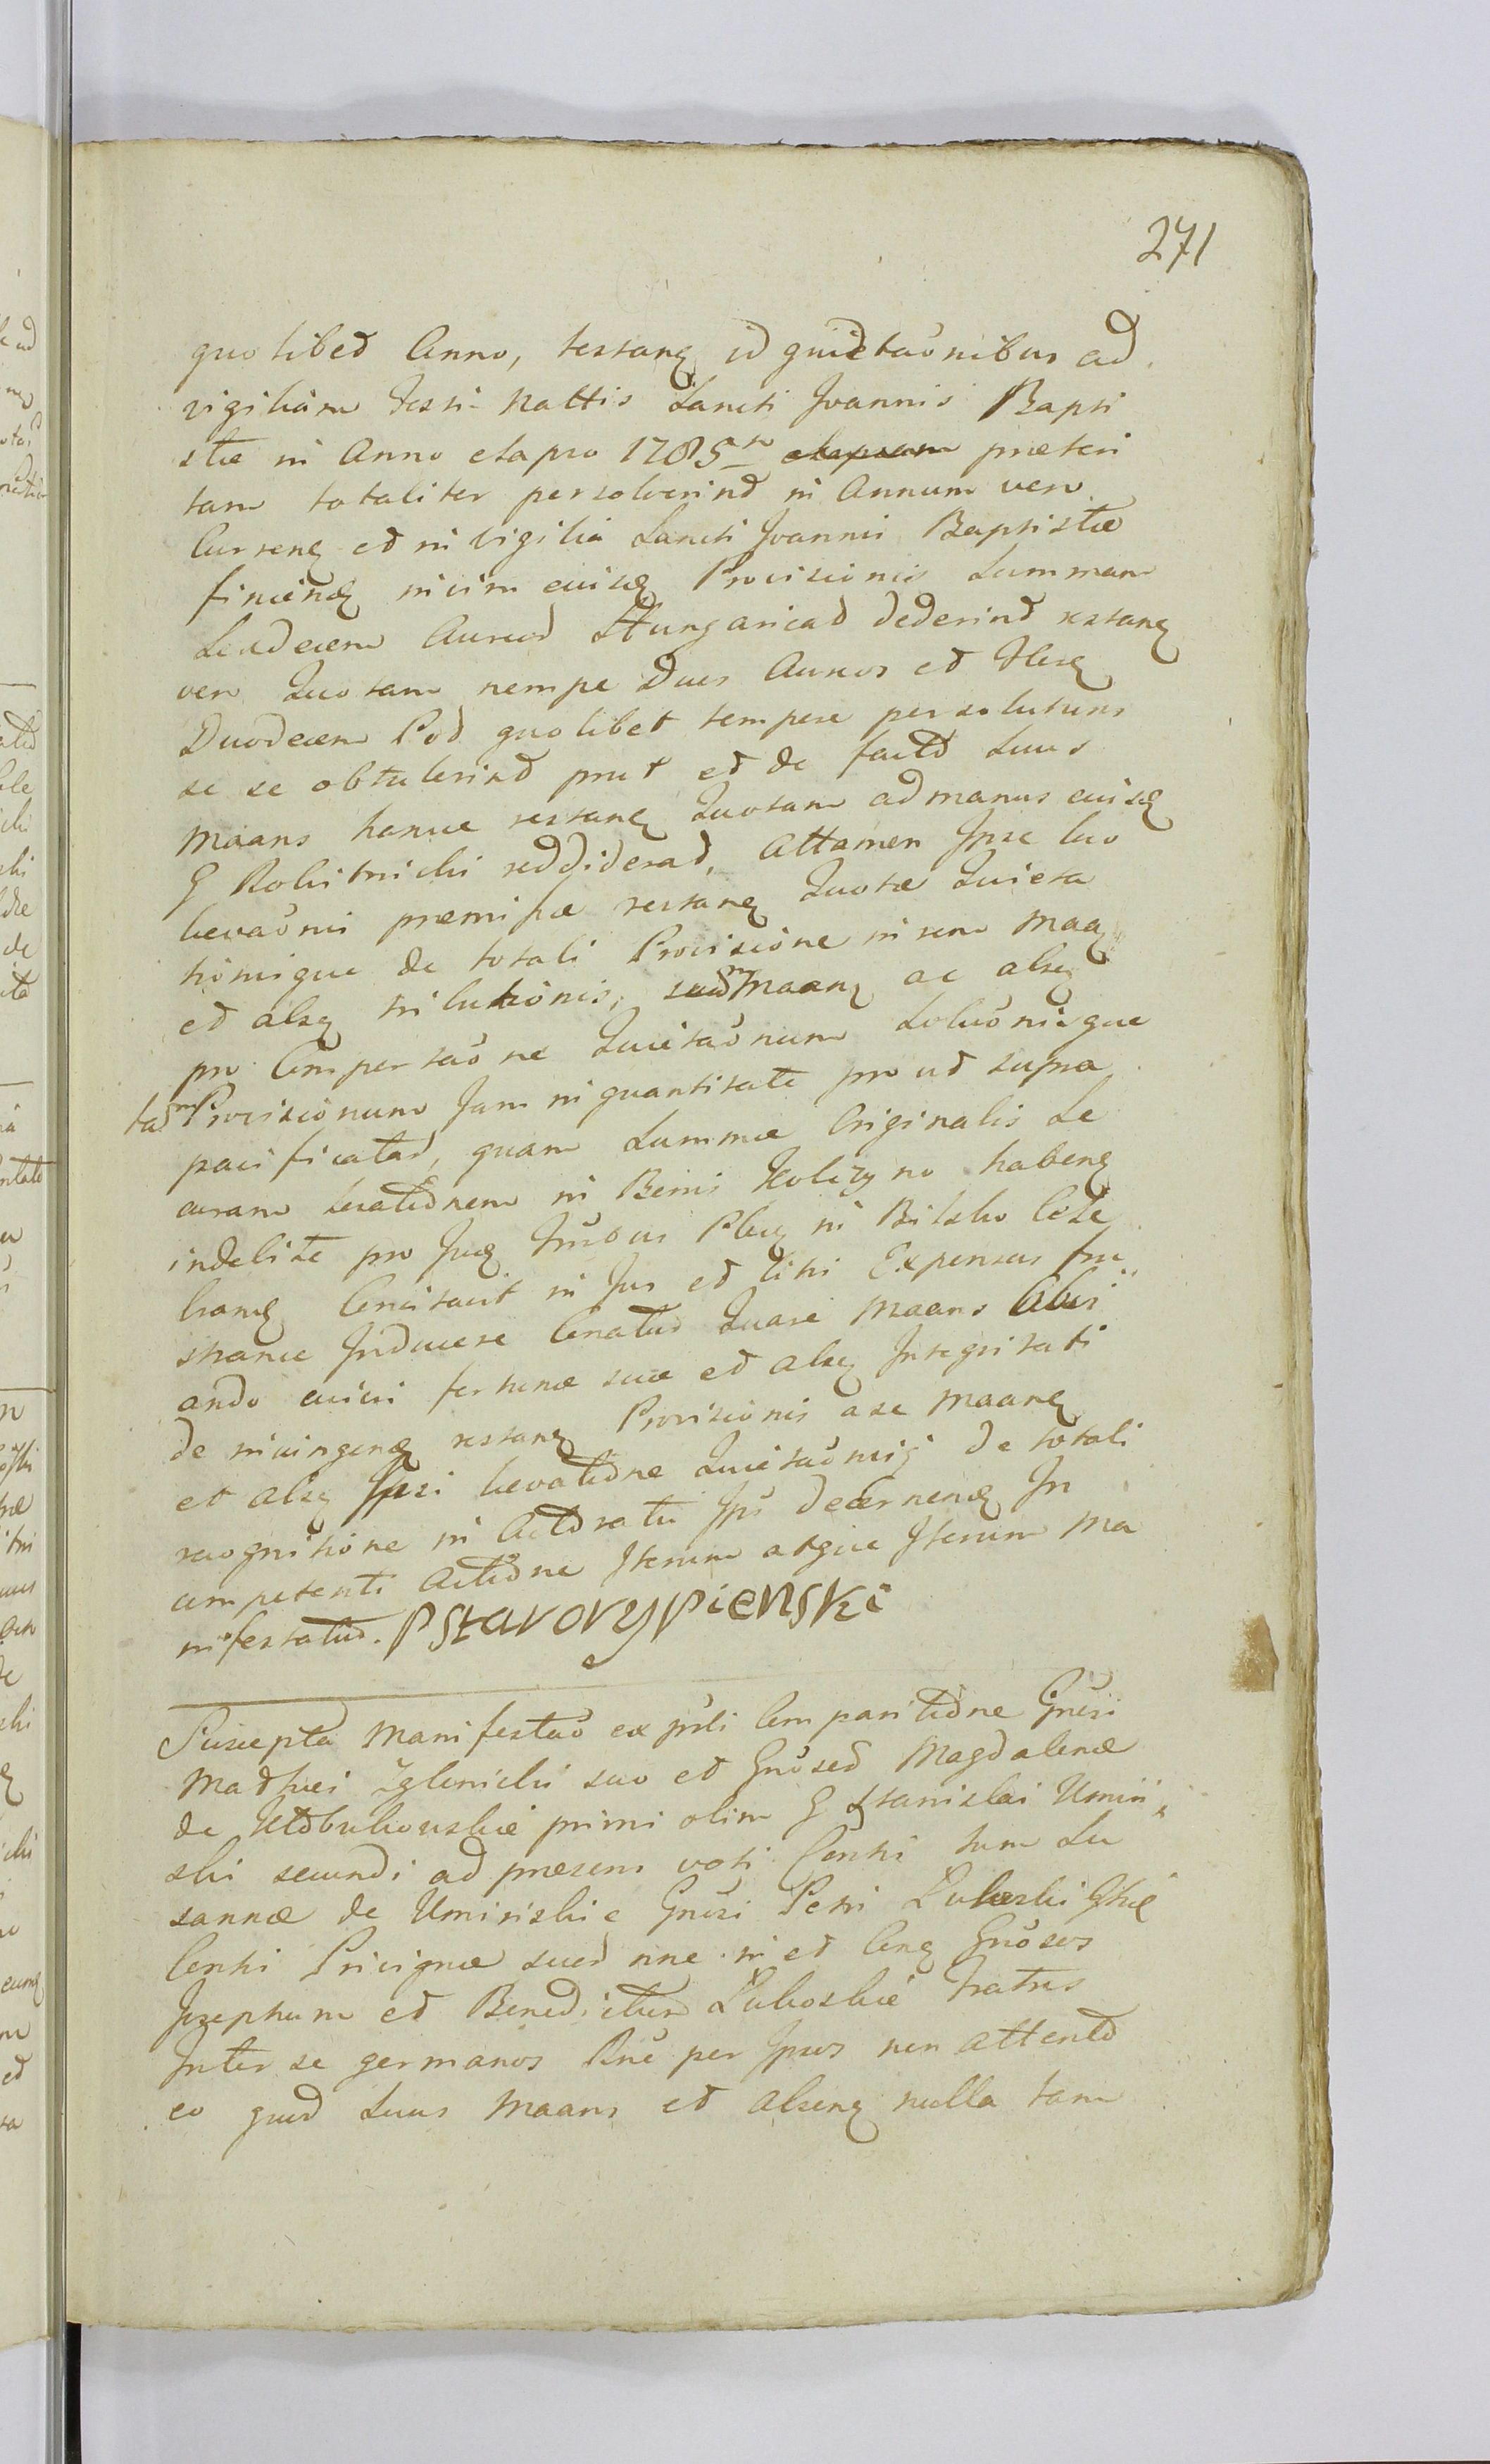 271
quolibet Anno, testang id quietaõnibus ad
vigiliam Festi Nattis Sancti Joannis Bapti
stæ in Anno elapso 1785to elapsam præteri
tam totaliter persolverint in Annum vero
Currenq et in vigilia Sancti Joannis Baptistæ
finienq vicim eiusq Provisionis Summam
Sexdecem Aureos Hungarical dederint restanq
vero Quotam nempe Duos Aureos et flrq
Duodecem Pol quolibet tempore persoluturos
se se obtulerint prut et de facto Suus
Maans hance restanq Quotam ad manus eiusq
G Rokitnicki reddiderat, Attamen Ipse luo
levaõni præmissæ restanq Quotæ Quieta
tionique de totali Provisione in rem Maaq
et alsq tributionis, Maanq ac alsq
pro Compertaõne Quietaõnum Soluõnisque
tas Provisionum Jam in quantitate pro ut supra
pacificatas, quam Summæ Originalis Se
curam locationem in Bonis Kolczyno habenq
indebite pro Juq Pluq in Bilsko Cele
branq Concitavit in Jus et liti Expensas fru
stranee Inducere Conatus Quare Maans Obvi
ando cuivi fortunæ suæ et alsq Integritati
de nivingenq restanq Provisionis a se Maanq
et alsq Ipsi levatione Quietaõnisq de totali
recognitione in Actoratu Ips decernenq In
competenti Actione Iterum atque Iterum Ma
nifestatus. P Starorypienski
Suscepta Manifestaõ ex psli Comparitione Gnŭsi
Mathæi Zglenicki suo et Gnosæ Magdalenæ
de primi olim G Stanislai Umiń
ski secundi ad præsens voti Conthi tum Su
sannæ de Uminiskie Gnŭsi Petri
Conthi Privignæ suæ nne in et Conq Gnosos
Josephum et Benedictum Fratres
Inter se germanos Rne per Ipsos non attento
eo quod Suus Maans et alsenq nulla tam